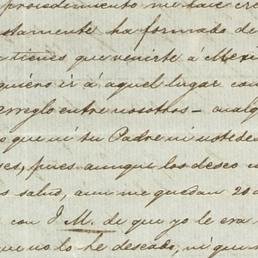 procedimiento me hace cre
stamente ha formado de
tienes que venirte á Méxi
quiero ir á aquel lugar con
rreglo entre nosotros - cualq
que ni tu Padre ni ustedes
ses, pues aunque los deseo
salud, aun me quedan 20
con J. M. de que yo le era
que no lo he deseado, ni que